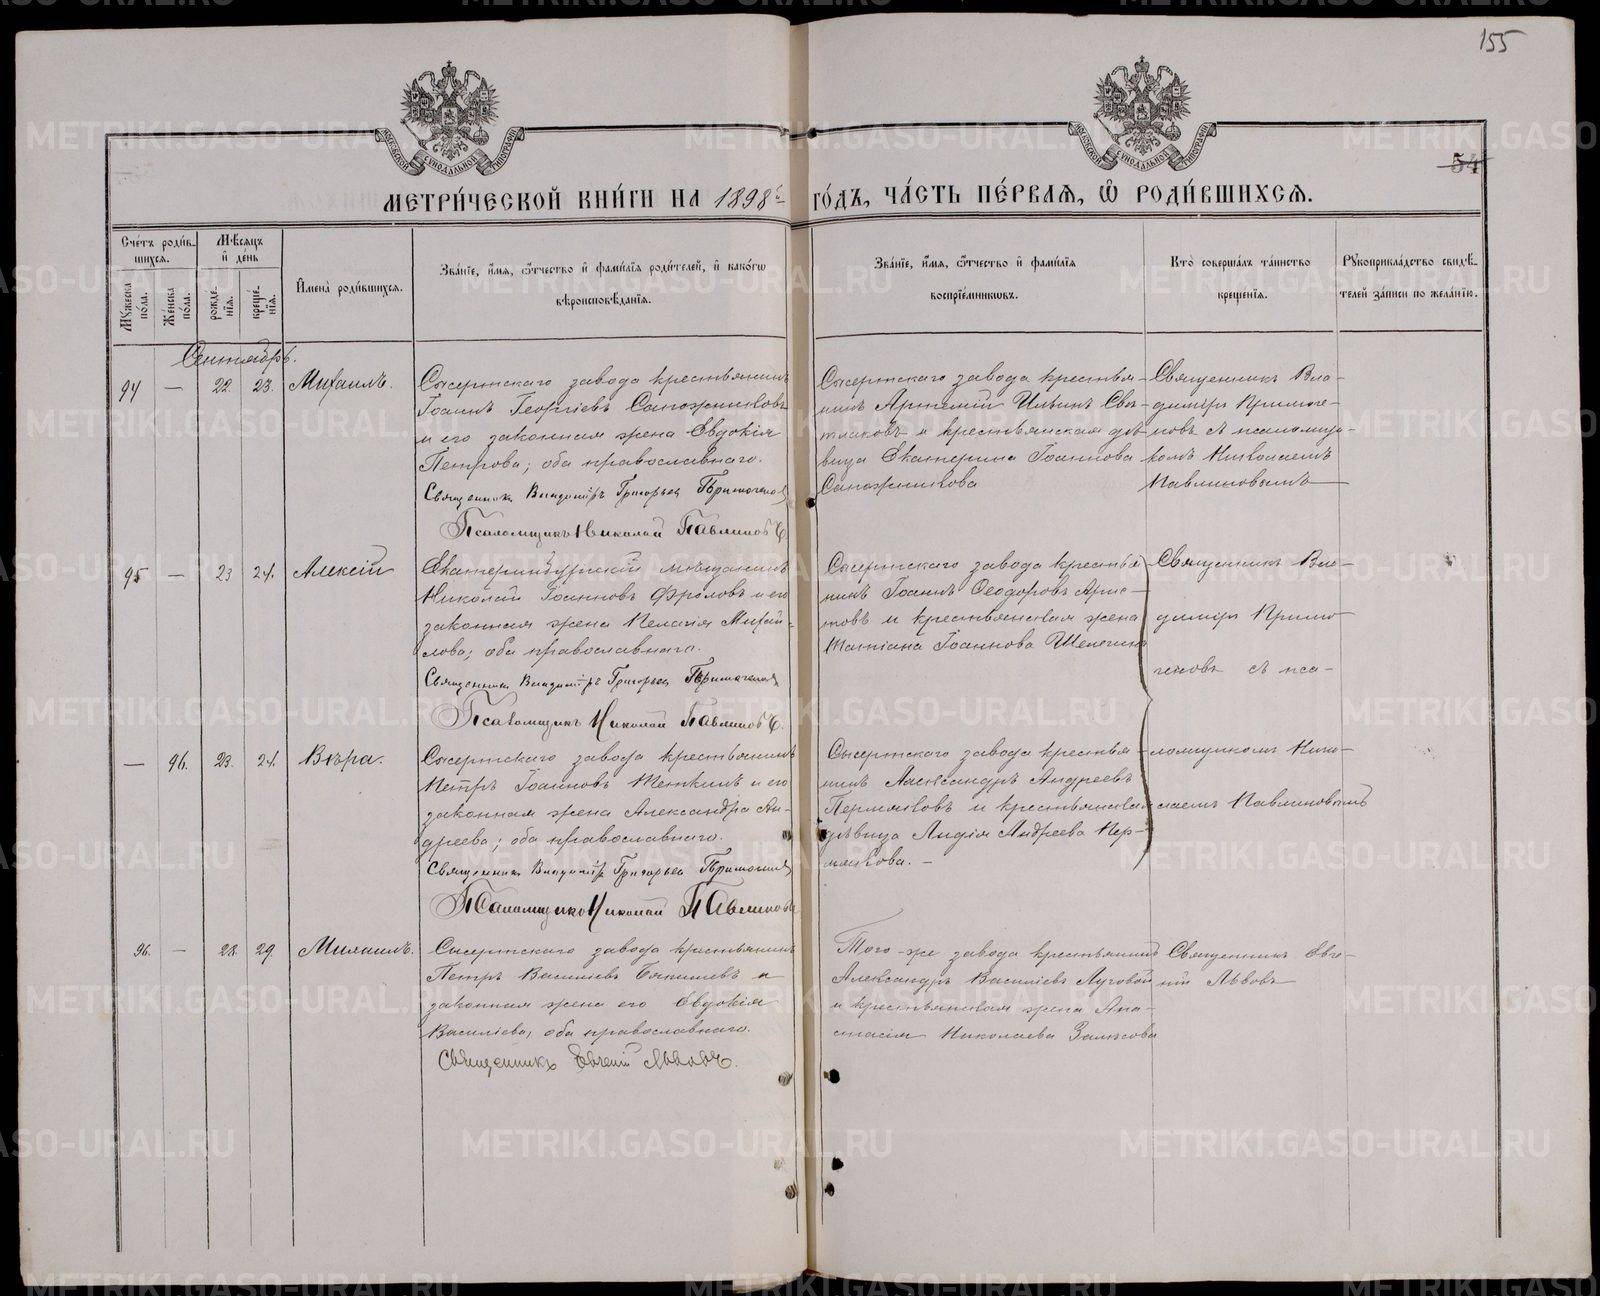 155
54
МЕТРИ́ЧЕСКОЙ КНИ́ГИ НА 1898й ГО́ДЪ, ЧА́СТЬ ПЕ́РВАЯ, Ѡ҆ РОДИ́ВШИХСЯ.
Сче́тъ роди́в-
шихся.
Мꙋ́жеска по́ла.
Же́нска по́ла.
Мѣ́сяцъ
и҆ де́нь
рожде́-
нїѧ.
креще́-
нїѧ.
И҆мена̀ роди́вшихся.
Зва́нїе, и҆́мѧ, ѻ҆́тчество и҆ фамі́лїѧ роди́телей, и҆ како́гѡ
вѣроисповѣ́данїѧ.
Зва́нїе, и҆́мѧ, ѻ҆́тчество и҆ фамі́лїѧ
воспрїе́мникѡвъ.
Кто̀ соверша́лъ та́инство
креще́нїѧ.
Рꙋкоприкла́дство свидѣ́-
телей за́писи по жела́нїю.
Сентябрь.
94 — 22. 23. Михаилъ.
Сысертскаго завода крестьянинъ
Іоаннъ Георгіевъ Сапожниковъ
и его законная жена Евдокія
Петрова; оба православнаго.
Священникъ Владиміръ Григорьевъ
Псаломщикъ Николай Павлиновъ
Сысертскаго завода крестья-
нинъ Артемій Ильинъ
и крестьянская дѣ-
вица Екатерина Іоаннова
Сапожникова
Священникъ Вла-
диміръ Примоге-
новъ съ псаломщи-
комъ Николаемъ
Павлиновымъ
95 — 23 24. Алексій
Екатеринбургскій мѣщанинъ
Николай Іоанновъ Фроловъ и его
законная жена Пелагія Михай-
лова; оба православнаго.
Священникъ Владиміръ Григорьевъ
Псаломщикъ Николай Павлиновъ.
Сысертскаго завода крестья-
нинъ Іоаннъ Ѳеодоровъ Арис-
товъ и крестьянская жена
Татіана Іоаннова
Священникъ Вла-
диміръ Примо-
геновъ съ пса-
— 96. 23. 24. Вѣра.
Сысертскаго завода крестьянинъ
Петръ Іоанновъ Теткинъ и его
законная жена Александра Ан-
дреева; оба православнаго.
Священникъ Владиміръ Григорьевъ
Псаломщикъ Николай Павлиновъ
Сысертскаго завода крестья-
нинъ Александръ Андреевъ
Пермяковъ и крестьянская
дѣвица Лидія Андреева Пер-
мякова. —
ломщикомъ Нико-
лаемъ Павлиновымъ
96. — 28. 29. Михаилъ.
Сысертскаго завода крестьянинъ
Петръ Василіевъ и
законная жена его Евдокія
Василіева, оба православнаго.
Священникъ Евгеній Львовъ.
Того-же завода крестьянинъ
Александръ Василіевъ Луговой
и крестьянская жена Ана-
стасія Николаева
Священникъ Евге-
ній Львовъ
METRIKI.GASO-URAL.RU